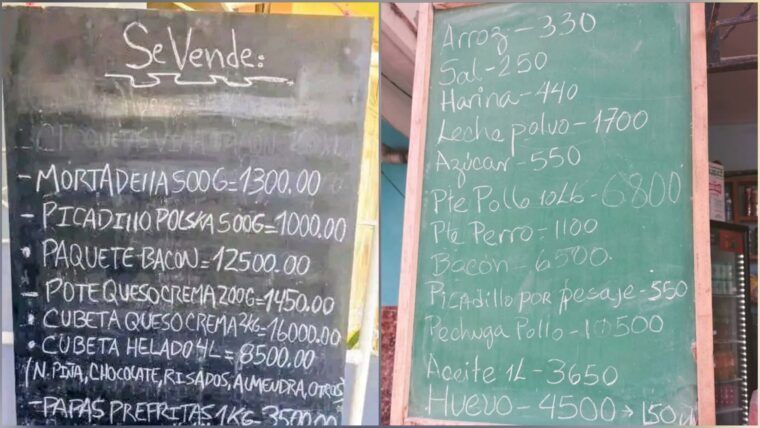 Se Vende:
CROQUETAS
- MORTADELLA 500G=1300.00
- PICADILLO POLSKA 500G=1000.00
• PAQUETE BACON=12500.00
- POTE QUESO CREMA 200G=1450.00
• CUBETA QUESO CREMA 2KG=16000.00
• CUBETA HELADO 4L=8500.00
(N. PIÑA, CHOCOLATE, RISADOS, ALMENDRA, OTROS)
- PAPAS PREFRITAS 1KG=3500.00
Arroz-330
Sal-250
Harina-440
Leche polvo-1700
Azúcar-550
Pte Pollo 10Lb-6800
Pte Perro-1100
Bacon-6500
Picadillo por pesaje-550
Pechuga Pollo-10500
Aceite 1L-3650
Huevo-4500→150u